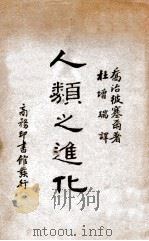 喬治披塞爾著
杜增瑞譯
人類之進化
商務印書館發行